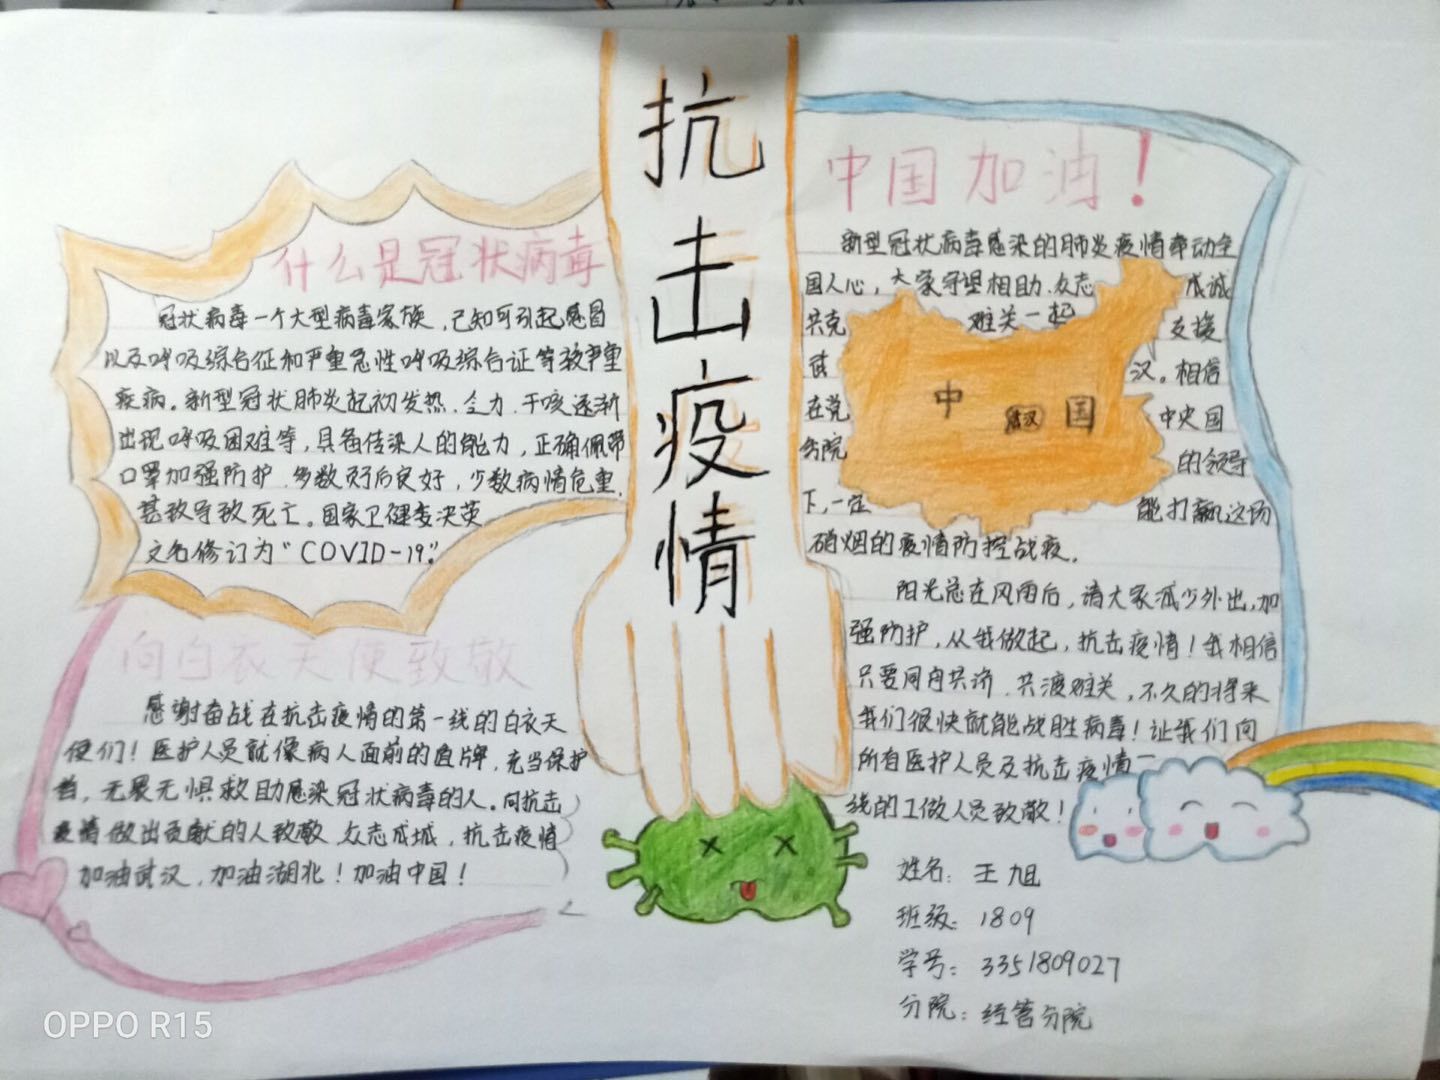 抗击疫情
什么是冠状病毒
冠状病毒一个大型病毒家族,已知可引起感冒
以及呼吸综合征和严重急性呼吸综合证等较严重
疾病。新型冠状肺炎起初发热、乏力、干咳逐渐
出现呼吸困难等,具备传染人的能力,正确佩带
口罩加强防护,多数预后良好,少数病情危重,
甚致导致死亡。国家卫健委决英
文名修订为“COVID-19”
向白衣天使致敬
感谢奋战在抗击疫情的第一线的白衣天
使们!医护人员就像病人面前的盾牌,充当保护
者,无畏无惧救助感染冠状病毒的人。向抗击
疫情做出贡献的人致敬,众志成城,抗击疫情
加油武汉,加油湖北!加油中国!
中国加油!
新型冠状病毒感染的肺炎疫情牵动全
国人心,大家守望相助、众志成诚
共克难关一起支援
武汉。相信
在党中央国
务院的领导
下,一定能打赢这场
硝烟的疫情防控战疫.
中武汉国
阳光总在风雨后,请大家减少外出,加
强防护,从我做起,抗击疫情!我相信
只要同舟共济、共渡难关,不久的将来
我们很快就能战胜病毒!让我们向
所有医护人员及抗击疫情一
线的工做人员致敬!
姓名:王旭
班级:1809
学号:3351809027
分院:经管分院
OPPO R15